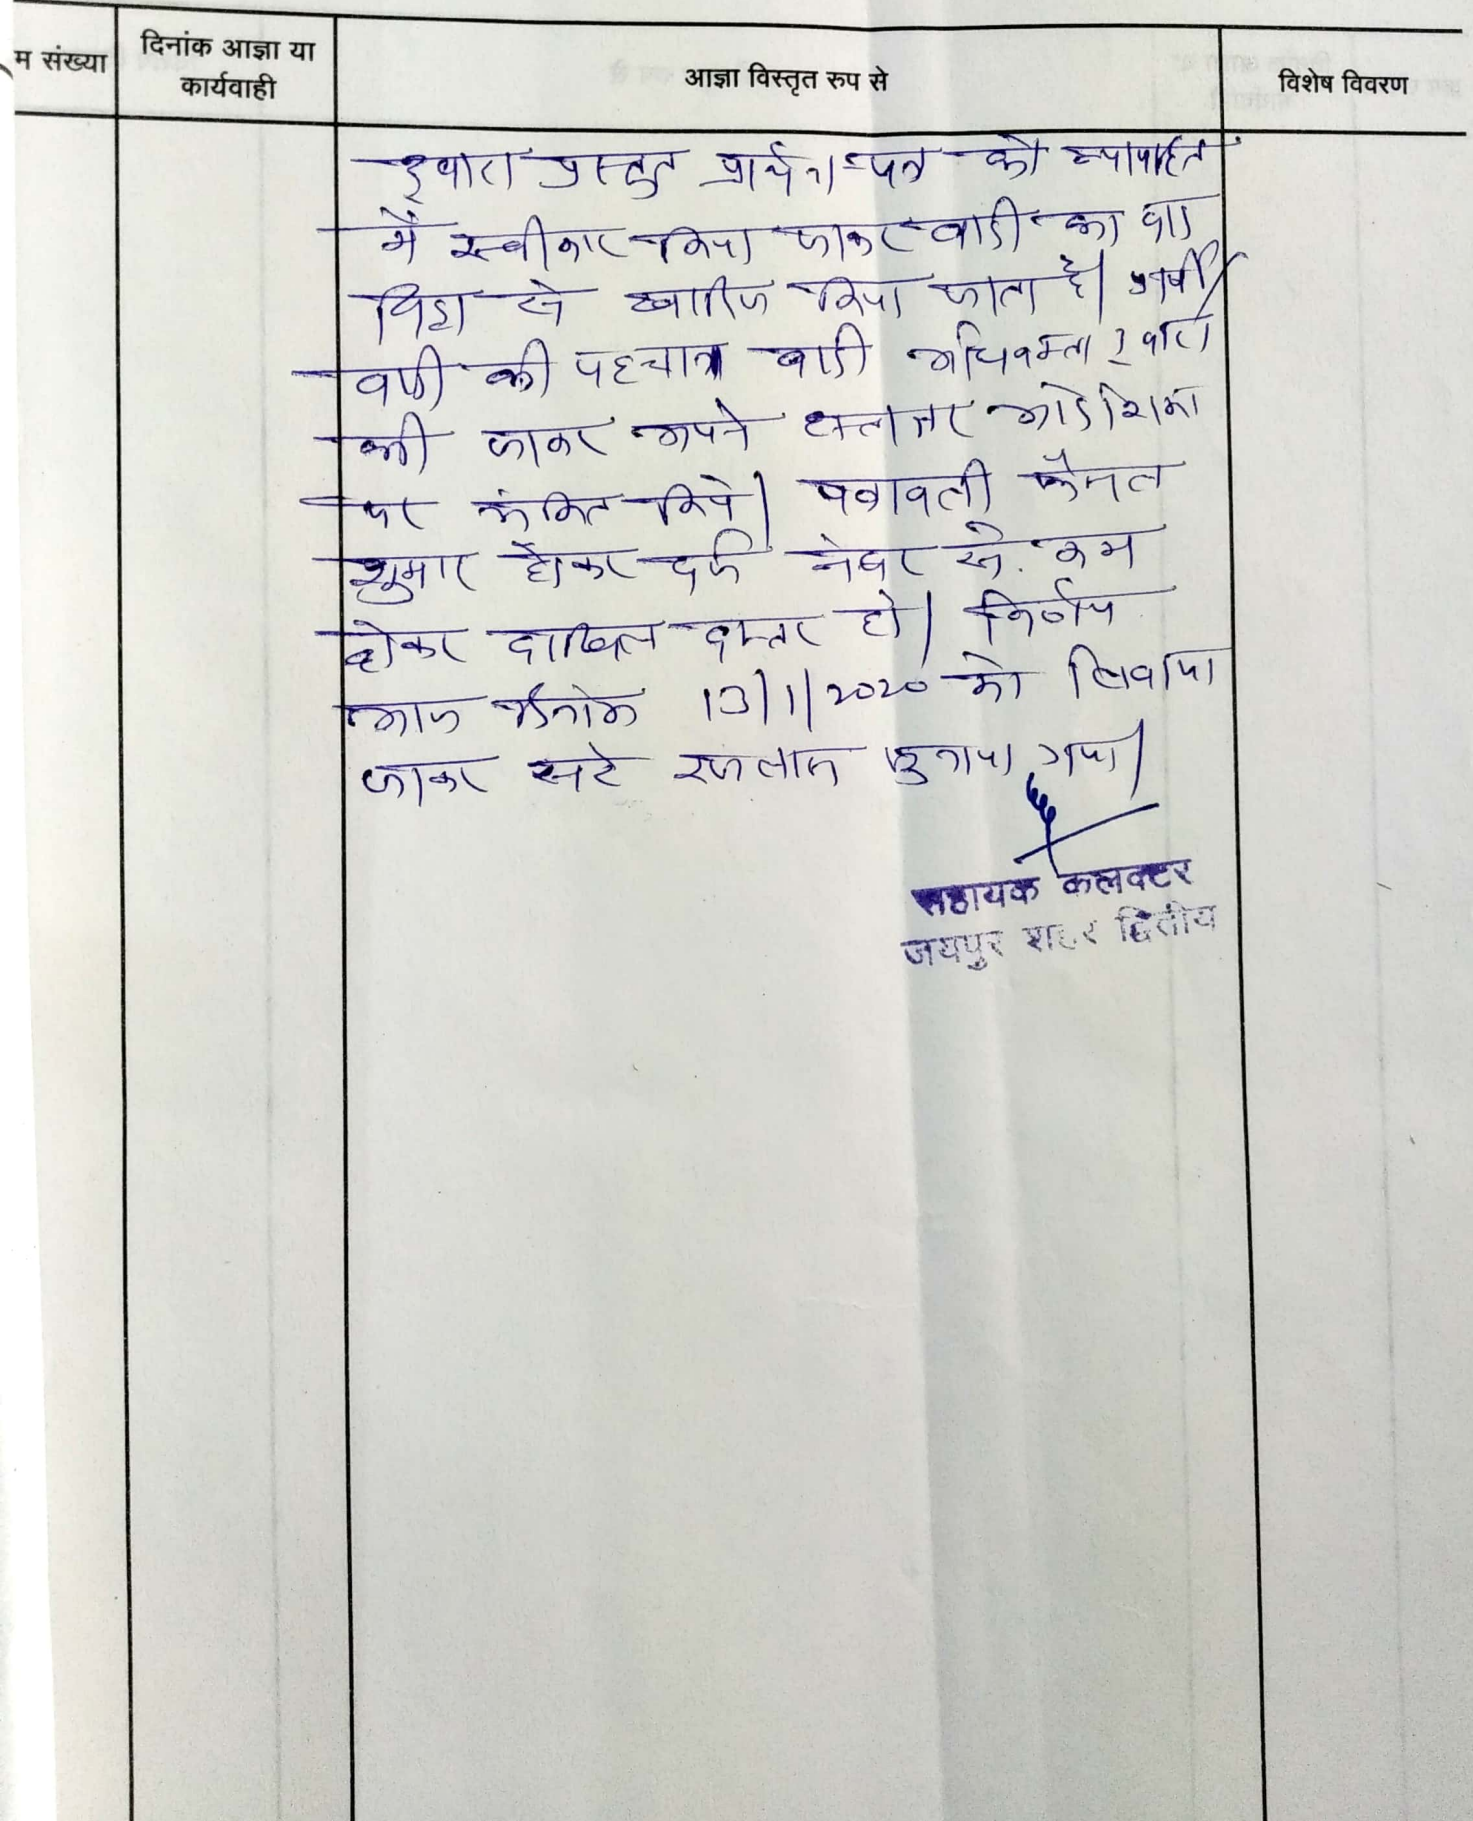 म संख्या
दिनांक आज्ञा या
कार्यवाही
आज्ञा विस्तृत रुप से
विशेष विवरण
द्वारा प्रस्तुत प्रार्थना-पत्र को न्यायहित
में स्वीकार किया जाकर वादी का वाद
विड्रा से खारिज किया जाता है। प्रार्थी/
वादी की पहचान वादी अधिवक्ता द्वारा
की जाकर अपने हस्ताक्षर आदेशिका
पर अंकित किये। पत्रावली फैसल
शुमार होकर दर्ज नंबर से कम
होकर दाखिल दफ्तर हो। निर्णय
आज दिनांक 13/1/2020 को लिखाया
जाकर सरे इजलास सुनाया गया।
सहायक कलक्टर
जयपुर शहर द्वितीय